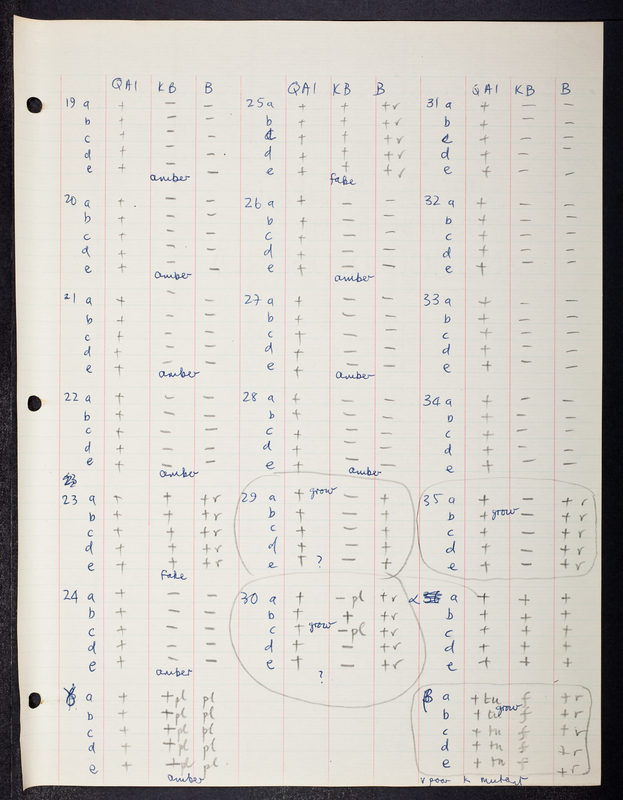 QA1 KB B QA1 KB B QA1 KB B
19 a + – – 25 a + + +r 31 a + – –
b + – – b + + +r b + – –
c + – – c + + +r c + – –
d + – – d + + +r d + – –
e + – – e + + +r e + – –
amber fake
20 a + – – 26 a + – – 32 a + – –
b + – – b + – – b + – –
c + – – c + – – c + – –
d + – – d + – – d + – –
e + – e + – – e + – –
amber amber
21 a + – – 27 a + – – 33 a + – –
b + – – b + – – b + – –
c + – – c + – – c + – –
d + – – d + – – d + – –
e + – – e + – – e + – –
amber amber
22 a + – – 28 a + – – 34 a + – –
b + – – b + – – b + – –
c + – – c + – – c + – –
d + – – d + – – d + – –
e + – – e + – – e + – –
amber amber
23 a + + +r 29 a + grow – + 35 a + – +r
b + + +r b + – + b + grow – +r
c + + +r c + – + c + – +r
d + + +r d + – + d + – +r
e + + +r e + ? – + e + – +r
fake
24 a + – – 30 a + –pl +r α a + + +
b + – – b + + +r b + + +
c + – – c + grow –pl +r c + + +
d + – – d + – +r d + + +
e + – – e + – +r e + + +
amber ?
a + +pl pl β a +tu f +r
b + +pl pl b +tu grow f +r
c + +pl pl c +tu f +r
d + +pl pl d +tu f +r
e + +pl pl e +tu f +r
amber poor K mutant